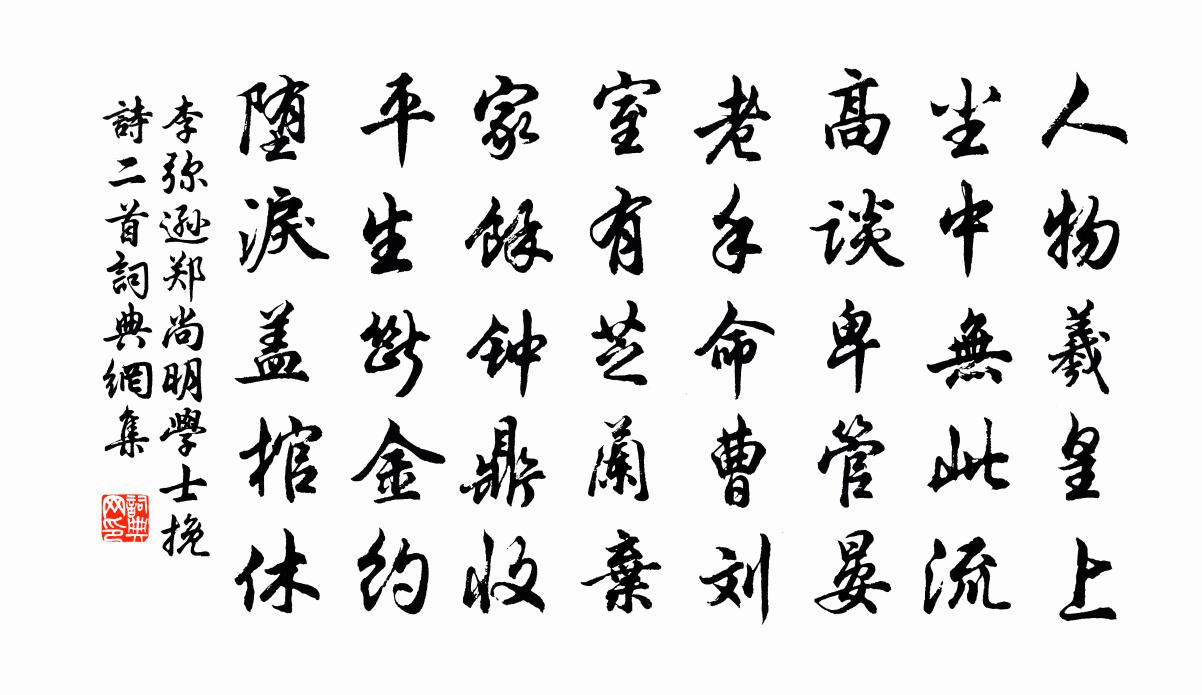 人物羲皇上
尘中無此流
高谈卑管晏
老手命曹刘
室有芝蘭棄
家餘钟鼎收
平生斷金约
堕淚盖棺休
李弥遜郑尚明學士挽
詩二首詞典網集
詞典网印